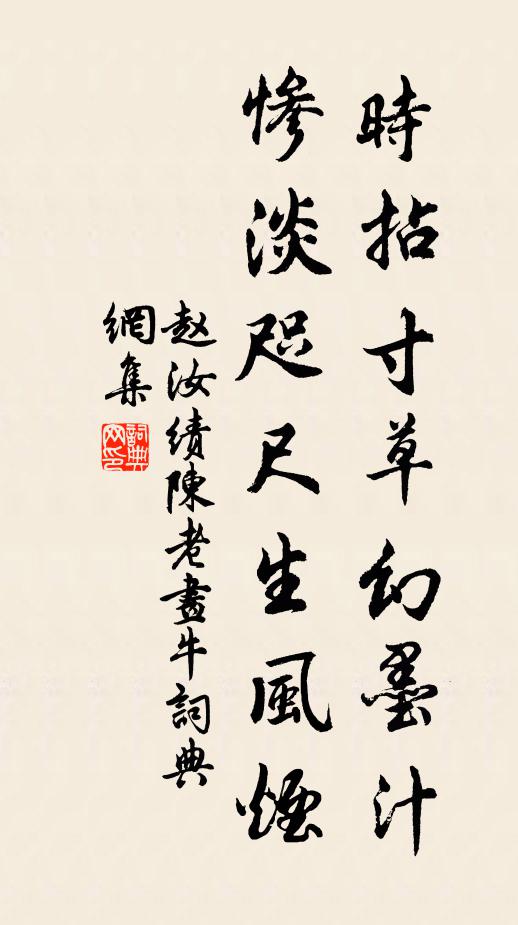 時拈寸草幻墨汁
慘淡咫尺生風煙
赵汝績陳老畫牛詞典
網集
詞典
网印